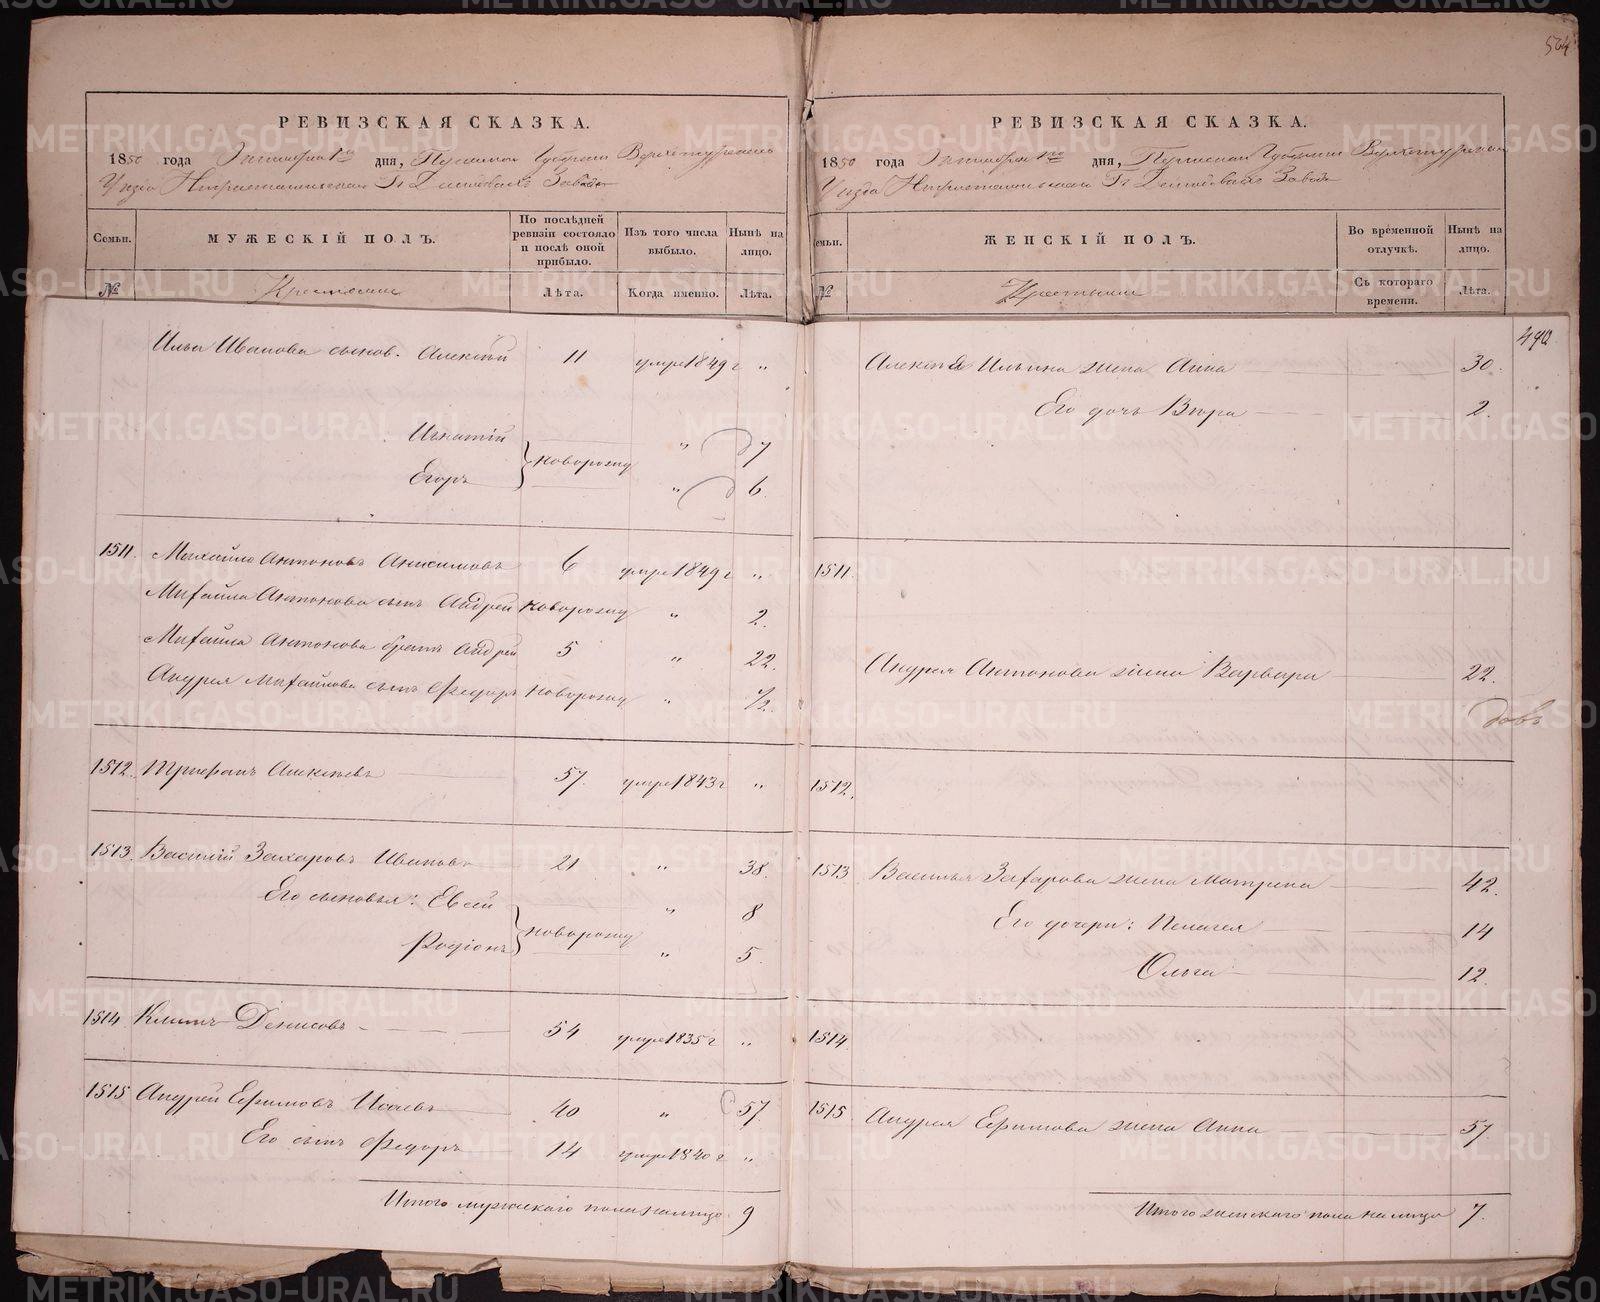 РЕВИЗСКАЯ СКАЗКА.
1850 года дня, Пермской Губернии Верхотурскаго
Уезда Нижнетагильскаго Гг. Демидовыхъ Завода
Семьи. МУЖЕСКІЙ ПОЛЪ. По послѣдней ревизіи состояло и послѣ оной прибыло. Изъ того числа выбыло. Нынѣ на лицо.
№ Крестьяне Лѣта. Когда именно. Лѣта.
Ильи Иванова сынов. Алексѣй 11 умре 1849 г „
Игнатій новорожд „ 7
Егоръ „ 6.
1511. Михайло Антоновъ Анисимовъ 6 умре 1849 г „
Михайла Антонова сынъ Андрей новорожд „ 2.
Михайла Антонова братъ Андрей 5 „ 22.
Андрея Михайлова сынъ Федоръ новорожд „ 1/2.
1512. Трифанъ Алексѣевъ 57. умре 1843 г „
1513. Василій Захаровъ Ивановъ 21 „ 38.
Его сыновья: Евсей новорожд „ 8
Родіонъ „ 5.
1514 Климъ Денисовъ 54 умре 1835 г „
1515 Андрей Ефимовъ Исаевъ 40 „ 57.
Его сынъ Федоръ 14 умре 1840 г „
Итого мужескаго пола налицо 9
564
РЕВИЗСКАЯ СКАЗКА.
1850 года дня, Пермской Губернии Верхотурскаго
Уезда Нижнетагильскаго Гг. Демидовыхъ Завода
Семьи. ЖЕНСКІЙ ПОЛЪ. Во врéменной отлучкѣ. Нынѣ на лицо.
№ Крестьяне Съ котораго времени. Лѣта.
490
Алексѣя Ильина жена Анна 30.
Его дочь 2.
1511.
Андрея Антонова жена Варвара 22.
1512.
1513 Василья Захарова жена Матрена 42.
Его дочери: Пелагея 14
Ольга 12.
1514.
1515 Андрея Ефимова жена Анна 57.
Итого женскаго пола налицо 7.
METRIKI.GASO-URAL.RU